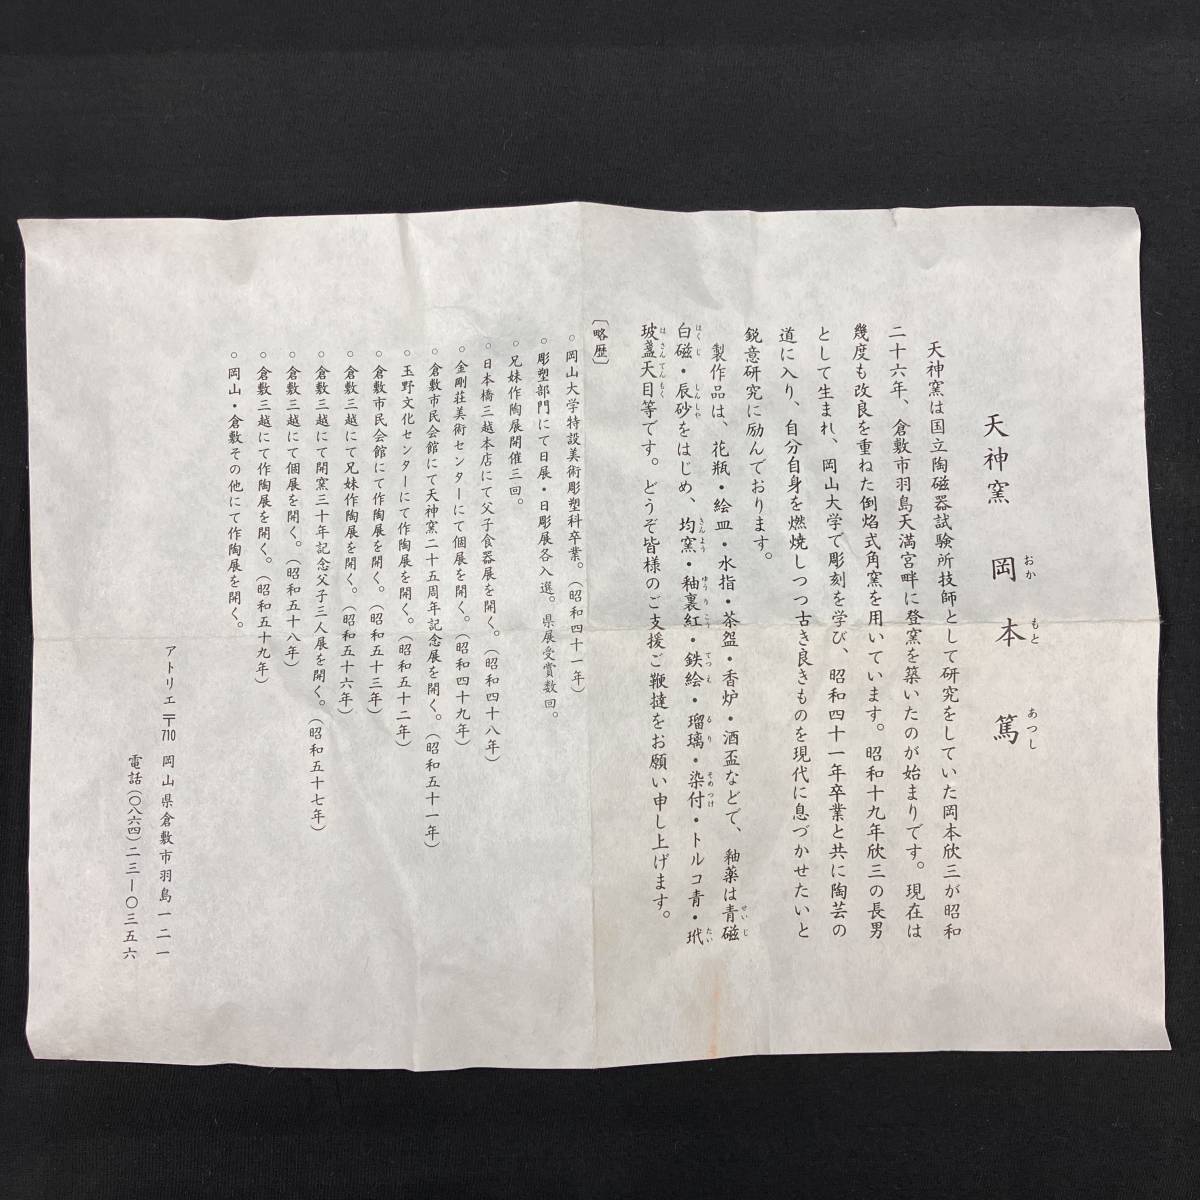 天神窯　岡本　篤
おか　もと　あつし
天神窯は国立陶磁器試験所技師として研究をしていた岡本欣三が昭和
二十六年、倉敷市羽島天満宮畔に登窯を築いたのが始まりです。現在は
幾度も改良を重ねた倒焰式角窯を用いています。昭和十九年欣三の長男
として生まれ、岡山大学で彫刻を学び、昭和四十一年卒業と共に陶芸の
道に入り、自分自身を燃焼しつつ古き良きものを現代に息づかせたいと
鋭意研究に励んでおります。
製作品は、花瓶・絵皿・水指・茶盌・香炉・酒盃などで、釉薬は青磁
せいじ
白磁・辰砂をはじめ、均窯・釉裏紅・鉄絵・瑠璃・染付・トルコ青・玳
はくじ　しんしゃ　きんよう　ゆうりこう　てつえ　るり　そめつけ　たい
玻盞天目等です。どうぞ皆様のご支援ご鞭撻をお願い申し上げます。
はさんてんもく
〔略歴〕
○岡山大学特設美術彫塑科卒業。（昭和四十一年）
○彫塑部門にて日展・日彫展各入選。県展受賞数回。
○兄妹作陶展開催三回。
○日本橋三越本店にて父子食器展を開く。（昭和四十八年）
○金剛荘美術センターにて個展を開く。（昭和四十九年）
○倉敷市民会館にて天神窯二十五周年記念展を開く。（昭和五十一年）
○玉野文化センターにて作陶展を開く。（昭和五十二年）
○倉敷市民会館にて作陶展を開く。（昭和五十三年）
○倉敷三越にて兄妹作陶展を開く。（昭和五十六年）
○倉敷三越にて開窯三十年記念父子三人展を開く。（昭和五十七年）
○倉敷三越にて個展を開く。（昭和五十八年）
○倉敷三越にて作陶展を開く。（昭和五十九年）
○岡山・倉敷その他にて作陶展を開く。
アトリエ 〒710 岡山県倉敷市羽島一二一
電話（〇八六四）二三ー〇三五六